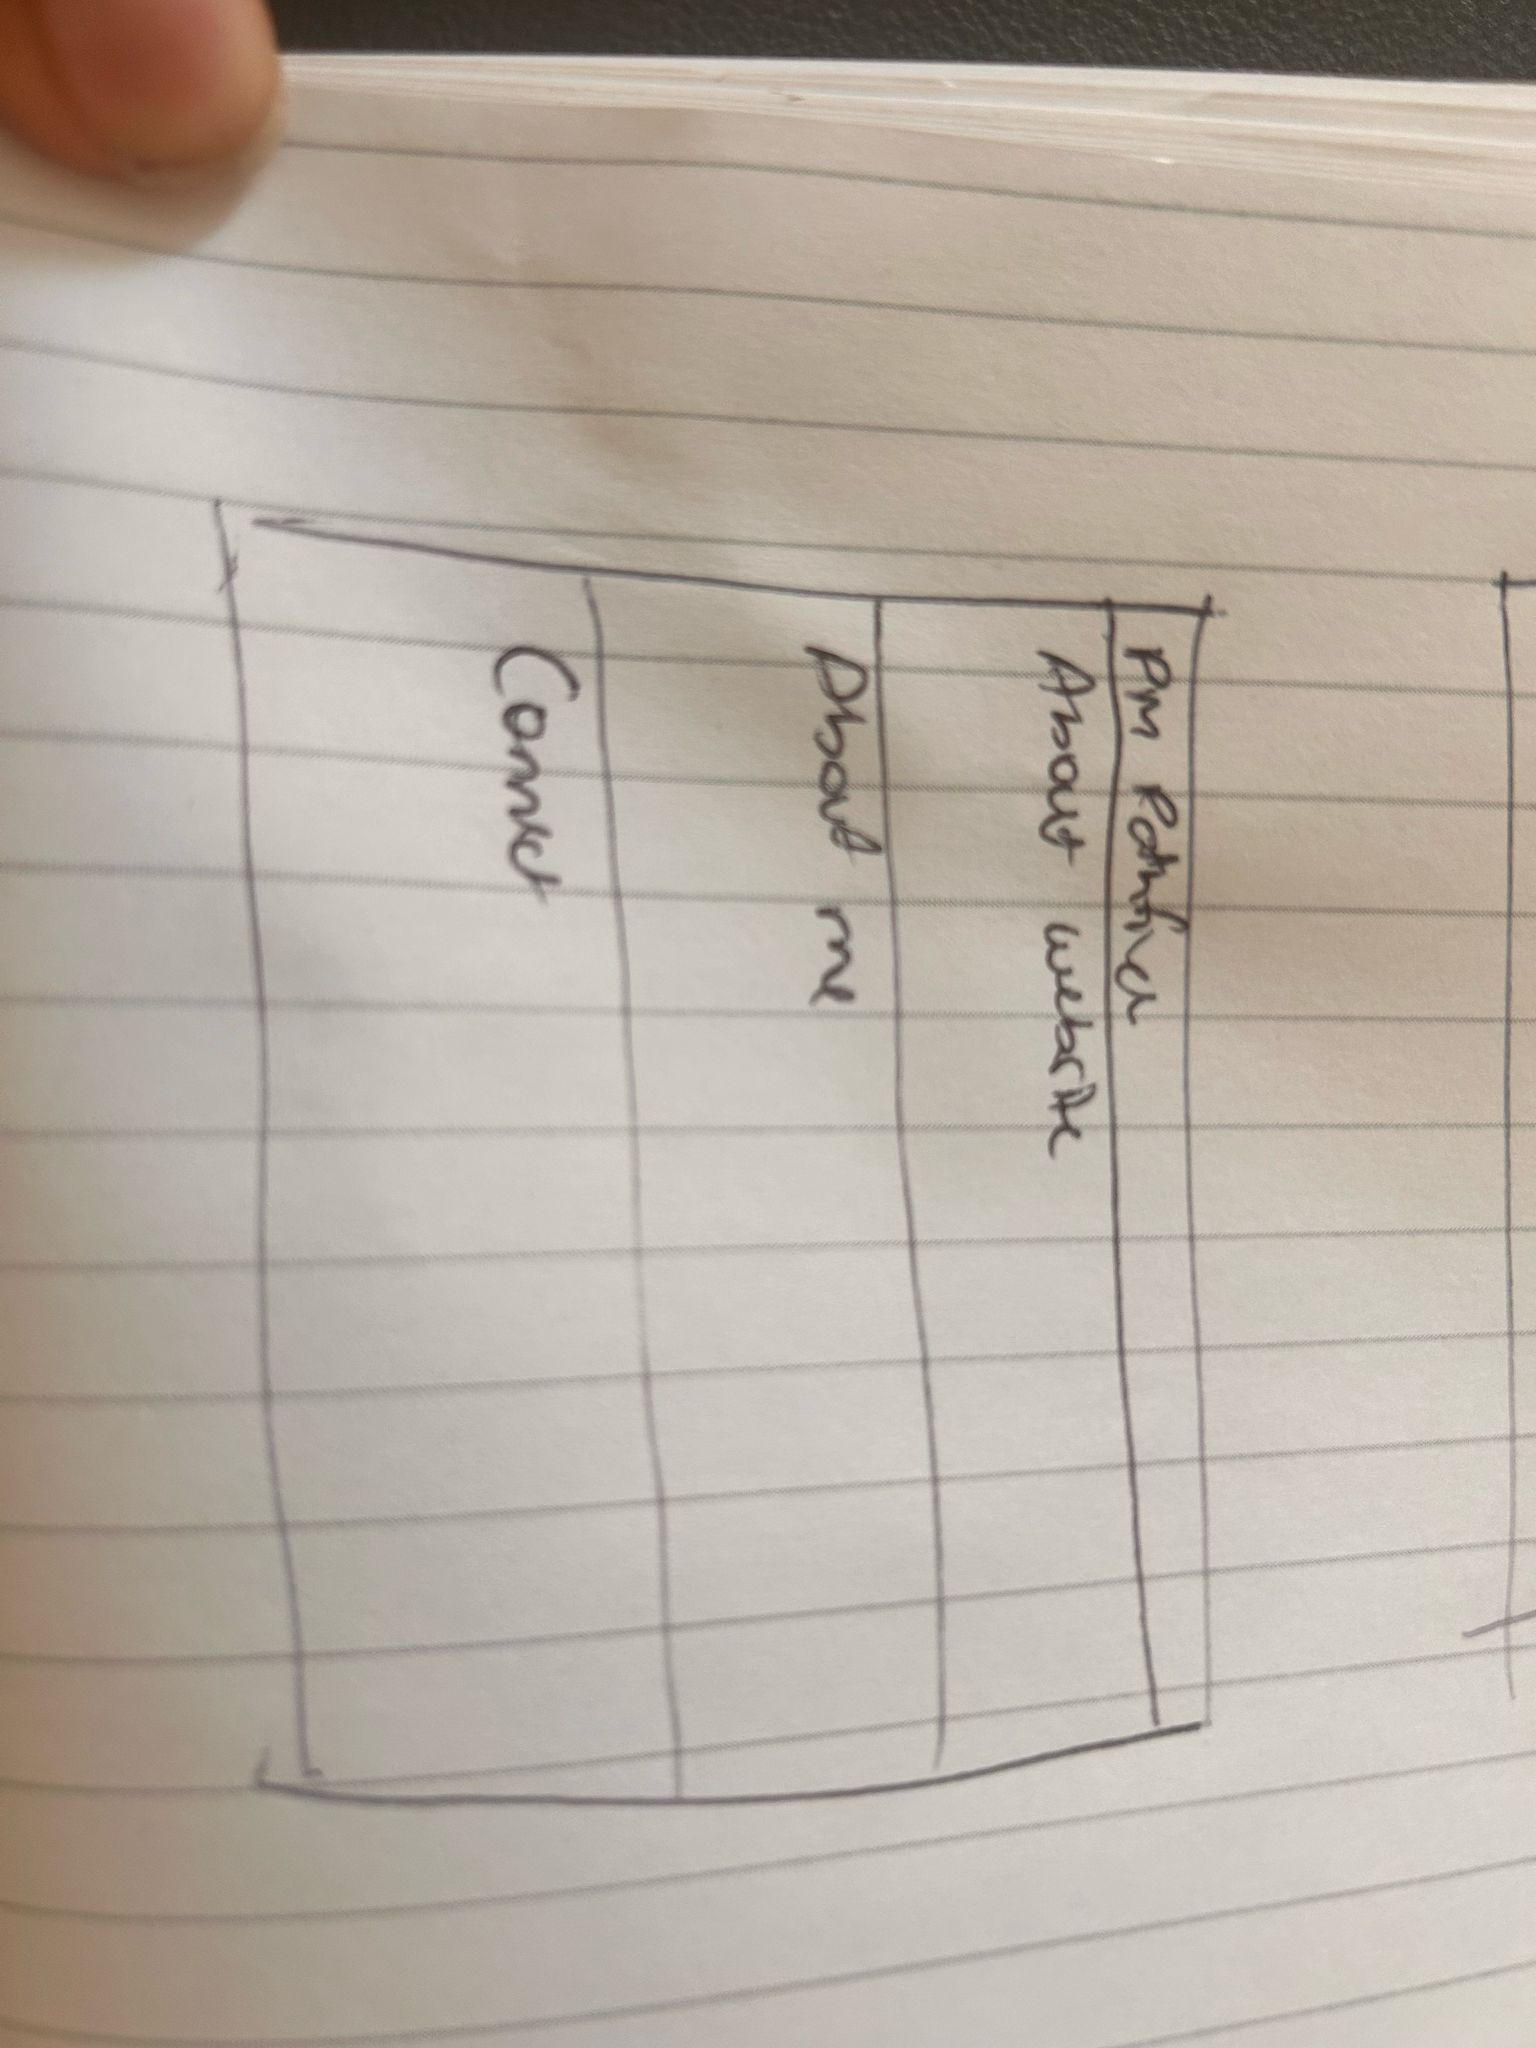 PM Pathfinder
About website
About me
Connect